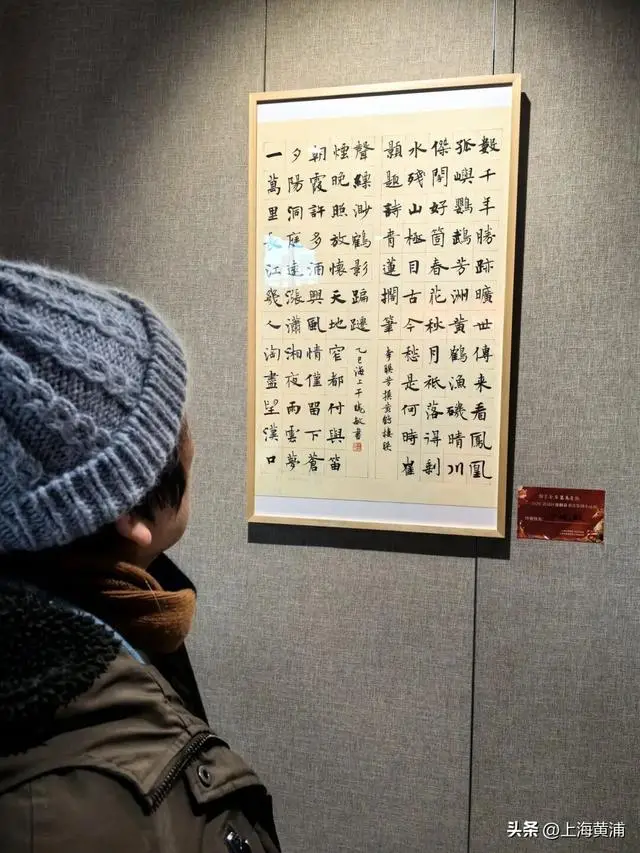 數千年勝跡曠世傳来看鳳凰
孤嶼鸚鵡芳洲黃鶴漁磯晴川
傑閣好箇春花秋月祇落得剩
水殘山極目古今愁是何時崔
顥題詩青蓮擱筆
李聯芳撰黃鶴樓聯
一萬里長江幾人淘盡望漢口
夕陽洞庭遠漲瀟湘夜雨雲夢
朝霞許多酒興風情僅留下蒼
煙晚照放懷天地窄都付與笛
聲縹渺鶴影蹁躚
乙巳海上于曉敏書
头条 @上海黄浦